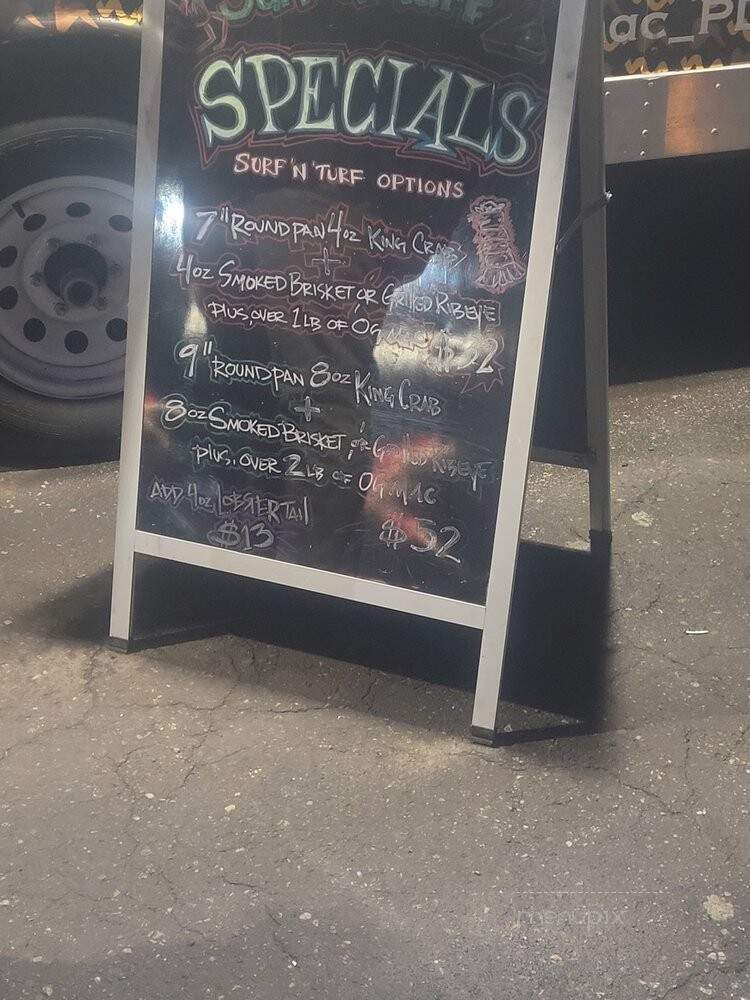 ac_PL
SPECIALS
SURF 'N' TURF OPTIONS
7" ROUND PAN 4OZ KING CRAB
+
4OZ SMOKED BRISKET OR GRILLED RIBEYE
PLUS, OVER 1 LB OF OG MAC
9" ROUND PAN 8OZ KING CRAB
+
8OZ SMOKED BRISKET, OR GRILLED RIBEYE
PLUS, OVER 2 LB OF OG MAC
ADD 4OZ LOBSTER TAIL
$13
$52
menupix